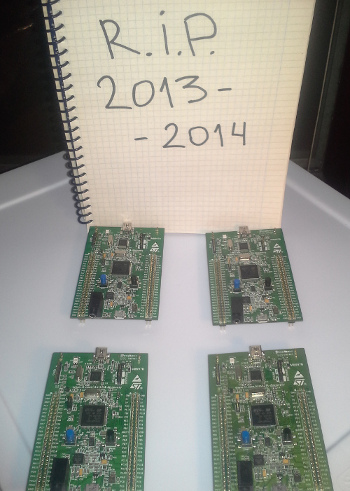 R.i.P.
2013-
-2014